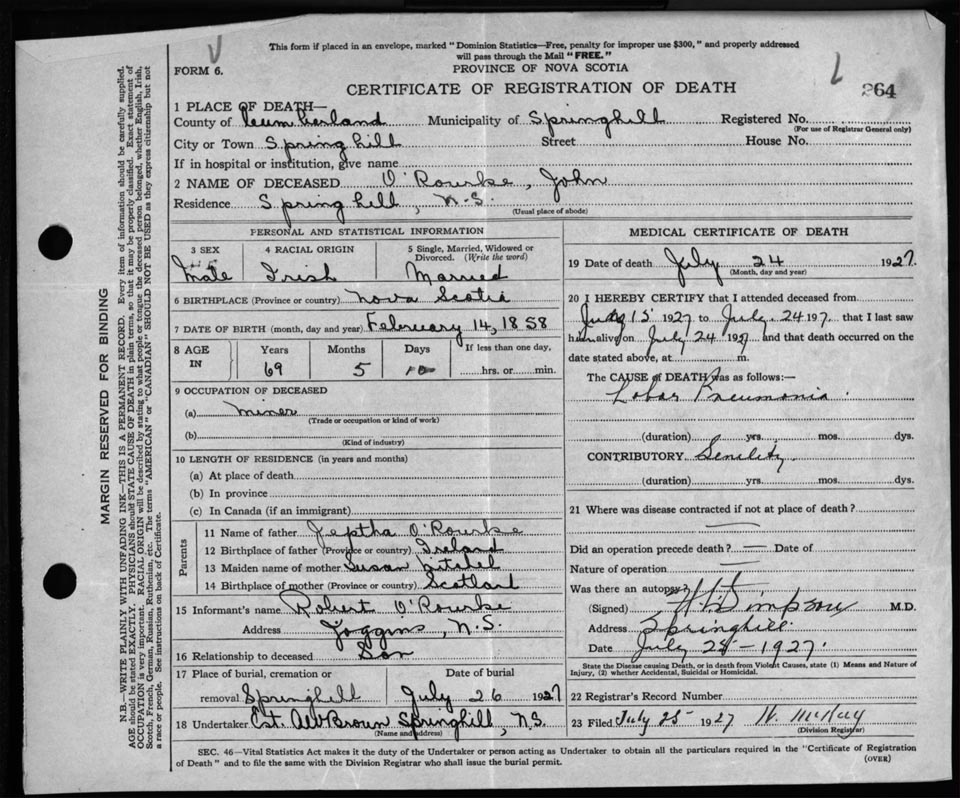 This form if placed in an envelope, marked "Dominion Statistics—Free, penalty for improper use $300," and properly addressed
will pass through the Mail "FREE."
FORM 6.
PROVINCE OF NOVA SCOTIA
CERTIFICATE OF REGISTRATION OF DEATH
264
1 PLACE OF DEATH—
County of Cumberland Municipality of Springhill Registered No.
(For use of Registrar General only)
City or Town Springhill Street House No.
If in hospital or institution, give name
2 NAME OF DECEASED O'Rourke, John
Residence Springhill, N.S.
(Usual place of abode)
PERSONAL AND STATISTICAL INFORMATION
3 SEX 4 RACIAL ORIGIN 5 Single, Married, Widowed or Divorced. (Write the word)
Male Irish Married
6 BIRTHPLACE (Province or country) Nova Scotia
7 DATE OF BIRTH (month, day and year) February 14, 1858
8 AGE IN Years Months Days If less than one day,
69 5 10 hrs. or min.
9 OCCUPATION OF DECEASED
(a) Miner
(Trade or occupation or kind of work)
(b)
(Kind of industry)
10 LENGTH OF RESIDENCE (in years and months)
(a) At place of death
(b) In province
(c) In Canada (if an immigrant)
Parents
11 Name of father Jeptha O'Rourke
12 Birthplace of father (Province or country) Ireland
13 Maiden name of mother Susan Mitchel
14 Birthplace of mother (Province or Country) Scotland
15 Informant's name Robert O'Rourke
Address Joggins, N.S.
16 Relationship to deceased Son
17 Place of burial, cremation or removal Date of burial
Springhill July 26 1927
18 Undertaker Est. AW Brown Springhill, N.S.
(Name and address)
MEDICAL CERTIFICATE OF DEATH
19 Date of death July 24 1927.
(Month, day and year)
20 I HEREBY CERTIFY that I attended deceased from
July 15 1927 to July 24 197 that I last saw
h alive on July 24 1927 and that death occurred on the
date stated above, at m.
The CAUSE of DEATH was as follows:—
Lobar Pneumonia
(duration) yrs. mos. dys.
CONTRIBUTORY Senility
(duration) yrs. mos. dys.
21 Where was disease contracted if not at place of death?
Did an operation precede death? — Date of
Nature of operation
Was there an autopsy?
(Signed) Simpson M.D.
Address Springhill.
Date July 25-1927.
State the Disease causing Death, or in death from Violent Causes, state (1) Means and Nature of
Injury, (2) whether Accidental, Suicidal or Homicidal.
22 Registrar's Record Number
23 Filed July 25 1927 H. McKay
(Division Registrar)
SEC. 46—Vital Statistics Act makes it the duty of the Undertaker or person acting as Undertaker to obtain all the particulars required in the "Certificate of Registration
of Death" and to file the same with the Division Registrar who shall issue the burial permit.
(OVER)
MARGIN RESERVED FOR BINDING
N.B.—WRITE PLAINLY WITH UNFADING INK—THIS IS A PERMANENT RECORD. Every item of information should be carefully supplied.
AGE should be stated EXACTLY. PHYSICIANS should STATE CAUSE OF DEATH in plain terms, so that it may be properly classified. Exact statement of
OCCUPATION is very important. RACIAL ORIGIN will be described by stating to what people or tongue the deceased person belonged, whether English, Irish,
Scotch, French, German, Russian, Ruthenian, etc. The terms "AMERICAN" or "CANADIAN" SHOULD NOT BE USED as they express citizenship but not
a race or people. See instructions on back of Certificate.